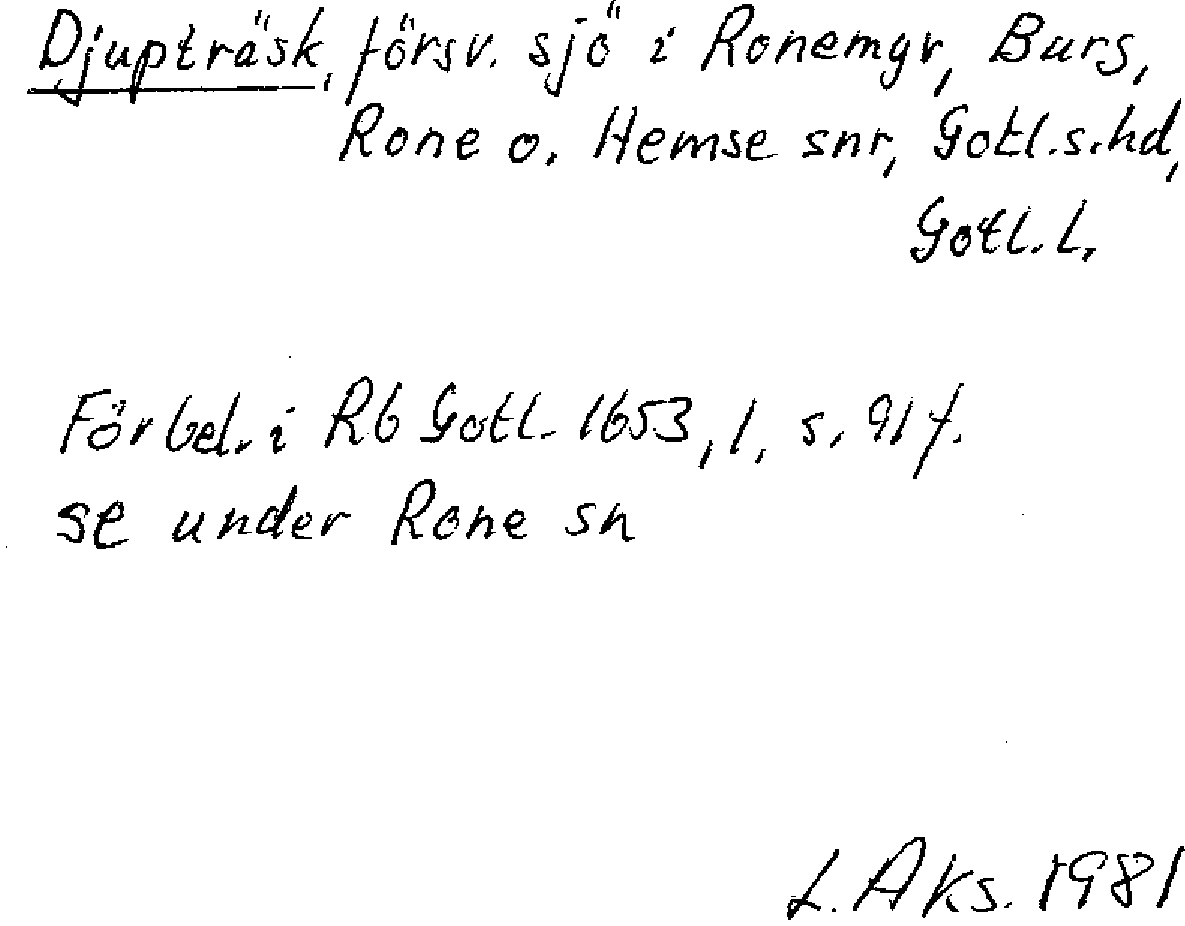 Djupträsk, försv. sjö i Ronemyr, Burs,
Rone o. Hemse snr, Gotl.s.hd,
Gotl. l.
För bel. i Rb Gotl. 1653, 1, s. 91 f.
se under Rone sn
L. Aks. 1981